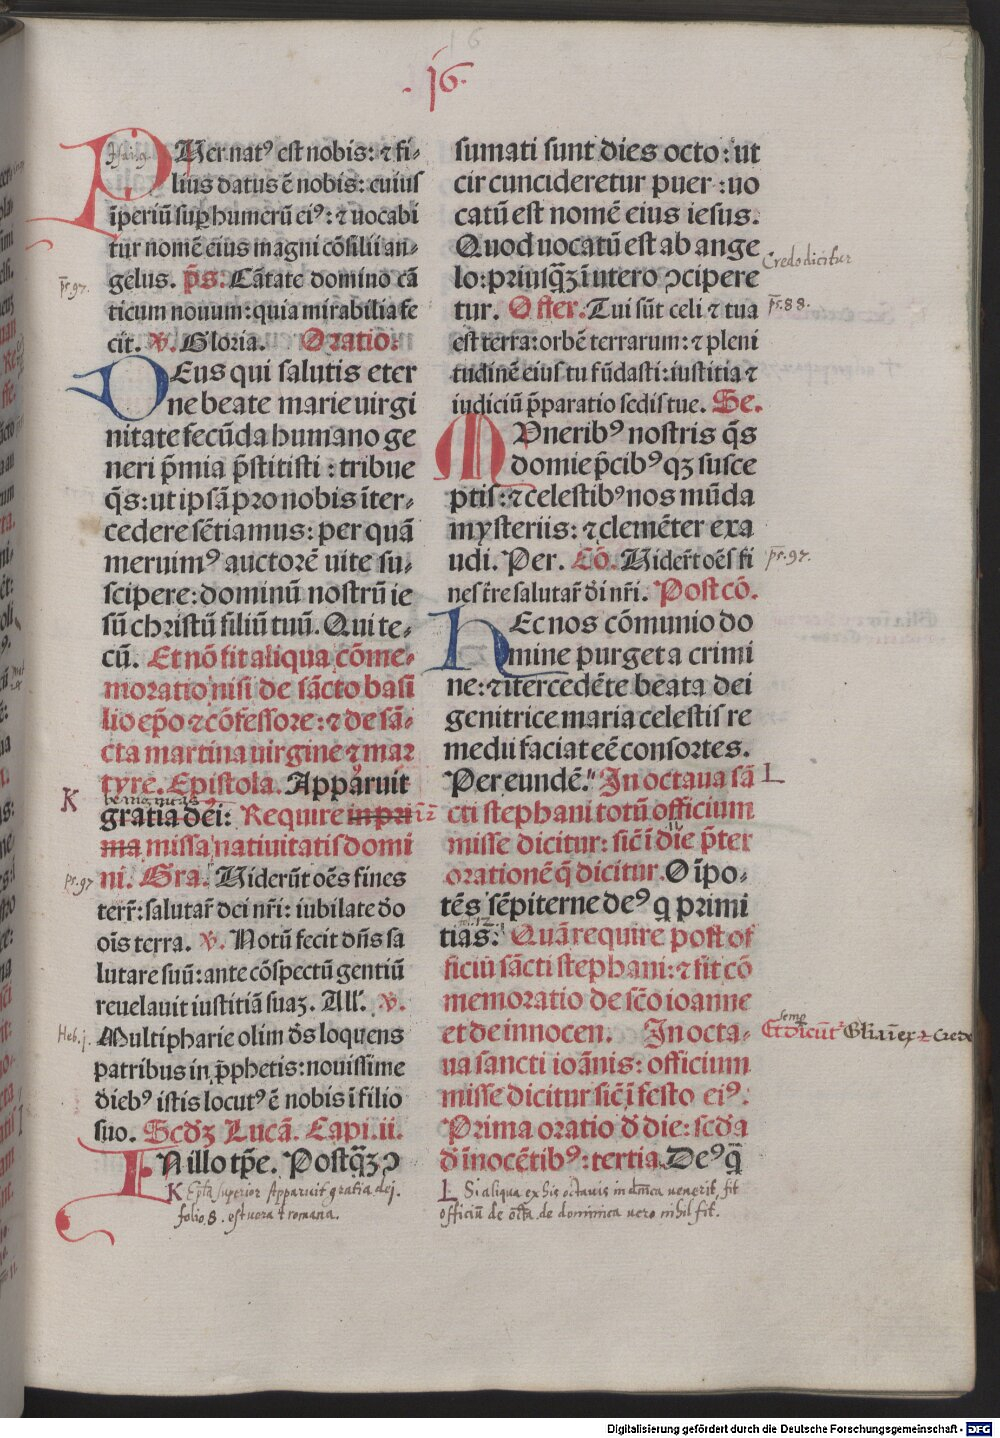 .16.
PUer nat⁹ est nobis: ⁊ fi-
lius datus ē nobis: cuius
īperiū suꝑ humerū ei⁹: ⁊ vocabi
tur nomē eius magni cōsilii an-
gelus. p̄s. Cātate domino cā
ticum nouum: quia mirabilia fe
cit. ꝟ. Gloria. Oratio.
DEus qui salutis eter
ne beate marie uirgi
nitate fecūda humano ge
neri p̄mia p̄stitisti : tribue
q̄s: ut ipsā pro nobis īter-
cedere sētiamus: per quā
meruim⁹ auctorē uite su-
scipere: dominū nostrū ie
sū christū filiū tuū. Qui te-
cū. Et nō fit aliqua cōme-
moratio nisi de sācto basi
lio ep̄o ⁊ cōfessore: ⁊ de sā-
cta martina uirgine ⁊ mar
tyre. Epistola. Apparuit
gratia dei: Require in pri 12
ma missa natiuitatis domi
ni. Gra. Viderūt oēs fines
terr̄: salutar̄ dei nr̄i: iubilate do
oīs terra. ꝟ. Notū fecit dn̄s sa
lutare suū: ante cōspectū gentiū
reuelauit iustitiā suaꝫ. All'. ꝟ.
Multipharie olim ds̄ loquens
patribus in p̄phetis: nouissime
dieb⁹ istis locut⁹ ē nobis ī filio
suo. Scd̄ꝫ Lucā. Capi. ii.
IN illo tp̄e. Postq̄ꝫ ↄ
K Epta superior Apparuit gratia dei.
folio 8. est vera ⁊ romana.
ps. 97.
K
ps. 97
Heb. j.
sumati sunt dies octo : ut
circuncideretur puer : uo
catū est nomē eius iesus.
Quod uocatū est ab ange
lo: priusq̄ꝫ ī utero ↄcipere
tur. Offer. Tui sūt celi ⁊ tua
est terra: orbē terrarum: ⁊ pleni
tudinē eius tu fūdasti: iustitia ⁊
iudiciū p̄paratio sedis tue. Se.
MUnerib⁹ nostris q̄s
domie p̄cib⁹qꝫ susce
ptis: ⁊ celestib⁹ nos mūda
mysteriis: ⁊ clemēter exa
udi. Per. Cō. Vider̄t oēs fi
nes t̄re salutar̄ di nr̄i. Post cō.
HEc nos cōmunio do
mine purget a crimi
ne: ⁊ itercedēte beata dei
genitrice maria celestis re
medii faciat eē consortes.
Per eundē. In octaua sā
cti stephani totū officium
misse dicitur: sic̄ ī die p̄ter
orationē q̄ dicitur. Oīpo-
tēs sēpiterne de⁹ q primi
tias. Quā require post of
ficiū sācti stephani: ⁊ fit cō
memoratio de scō ioanne
et de innocen. In octa-
ua sancti ioānis: officium
misse dicitur sic̄ ī festo ei⁹.
Prima oratio d̄ die: scd̄a
d̄ īnocētib⁹: tertia. De⁹ q̄
L Si aliqua ex his octauis in dn̄ica venerit, fit
officiū de octa. de dominica vero nihil fit.
Credo dicitur
ps. 88.
ps. 97.
L
semp
Et dicūt Glia ī ex ⁊ Credo
Digitalisierung gefördert durch die Deutsche Forschungsgemeinschaft - DFG